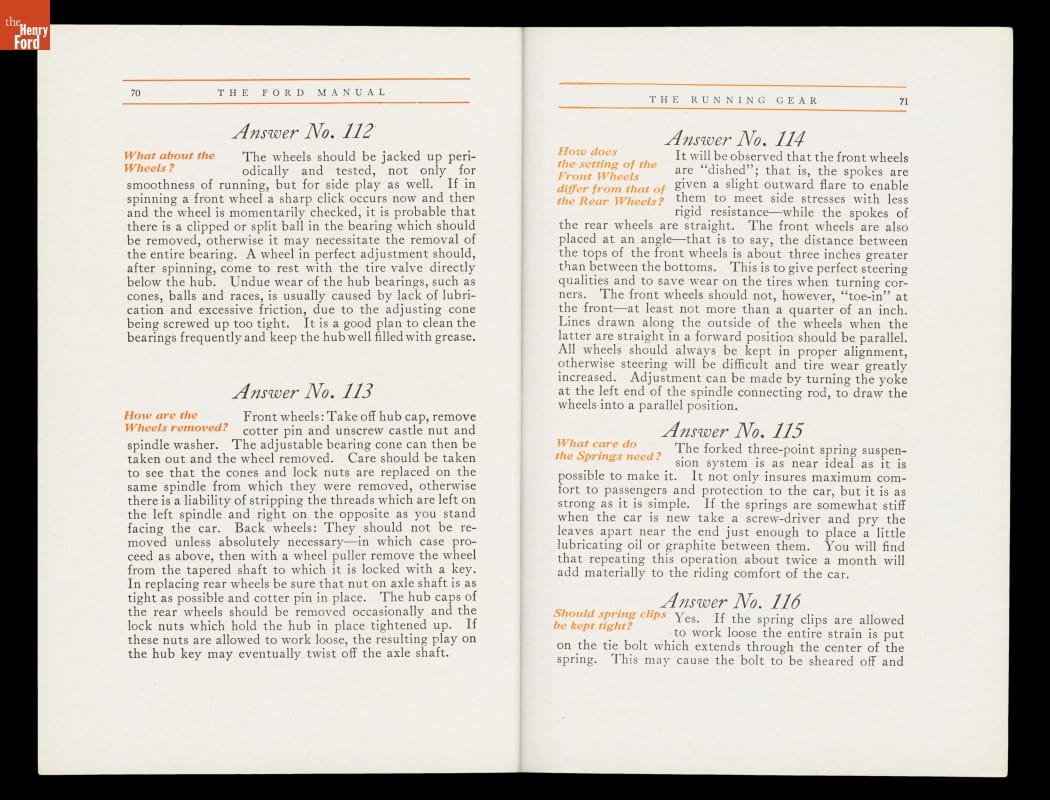 the
Henry
Ford
70 THE FORD MANUAL
Answer No. 112
What about the
Wheels?
The wheels should be jacked up peri-
odically and tested, not only for
smoothness of running, but for side play as well. If in
spinning a front wheel a sharp click occurs now and then
and the wheel is momentarily checked, it is probable that
there is a clipped or split ball in the bearing which should
be removed, otherwise it may necessitate the removal of
the entire bearing. A wheel in perfect adjustment should,
after spinning, come to rest with the tire valve directly
below the hub. Undue wear of the hub bearings, such as
cones, balls and races, is usually caused by lack of lubri-
cation and excessive friction, due to the adjusting cone
being screwed up too tight. It is a good plan to clean the
bearings frequently and keep the hub well filled with grease.
Answer No. 113
How are the
Wheels removed?
Front wheels: Take off hub cap, remove
cotter pin and unscrew castle nut and
spindle washer. The adjustable bearing cone can then be
taken out and the wheel removed. Care should be taken
to see that the cones and lock nuts are replaced on the
same spindle from which they were removed, otherwise
there is a liability of stripping the threads which are left on
the left spindle and right on the opposite as you stand
facing the car. Back wheels: They should not be re-
moved unless absolutely necessary—in which case pro-
ceed as above, then with a wheel puller remove the wheel
from the tapered shaft to which it is locked with a key.
In replacing rear wheels be sure that nut on axle shaft is as
tight as possible and cotter pin in place. The hub caps of
the rear wheels should be removed occasionally and the
lock nuts which hold the hub in place tightened up. If
these nuts are allowed to work loose, the resulting play on
the hub key may eventually twist off the axle shaft.
THE RUNNING GEAR 71
Answer No. 114
How does
the setting of the
Front Wheels
differ from that of
the Rear Wheels?
It will be observed that the front wheels
are “dished”; that is, the spokes are
given a slight outward flare to enable
them to meet side stresses with less
rigid resistance—while the spokes of
the rear wheels are straight. The front wheels are also
placed at an angle—that is to say, the distance between
the tops of the front wheels is about three inches greater
than between the bottoms. This is to give perfect steering
qualities and to save wear on the tires when turning cor-
ners. The front wheels should not, however, “toe-in” at
the front—at least not more than a quarter of an inch.
Lines drawn along the outside of the wheels when the
latter are straight in a forward position should be parallel.
All wheels should always be kept in proper alignment,
otherwise steering will be difficult and tire wear greatly
increased. Adjustment can be made by turning the yoke
at the left end of the spindle connecting rod, to draw the
wheels into a parallel position.
Answer No. 115
What care do
the Springs need?
The forked three-point spring suspen-
sion system is as near ideal as it is
possible to make it. It not only insures maximum com-
fort to passengers and protection to the car, but it is as
strong as it is simple. If the springs are somewhat stiff
when the car is new take a screw-driver and pry the
leaves apart near the end just enough to place a little
lubricating oil or graphite between them. You will find
that repeating this operation about twice a month will
add materially to the riding comfort of the car.
Answer No. 116
Should spring clips
be kept tight?
Yes. If the spring clips are allowed
to work loose the entire strain is put
on the tie bolt which extends through the center of the
spring. This may cause the bolt to be sheared off and